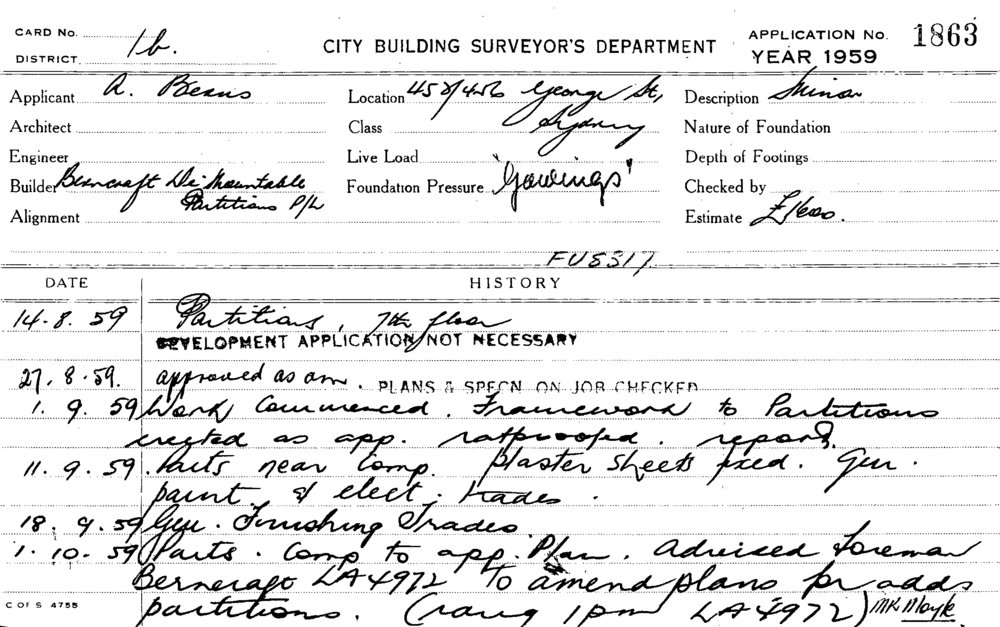 CARD No.
DISTRICT 1b.
CITY BUILDING SURVEYOR'S DEPARTMENT
APPLICATION No. 1863
YEAR 1959
Applicant A. Beans
Location 458/456 George St,
Description Minor
Architect
Class Sydney
Nature of Foundation
Engineer
Live Load
Depth of Footings
Builder Berncraft De Mountable
Foundation Pressure 'Gowings'
Checked by
Partitions P/L
Alignment
Estimate
FU8317
DATE HISTORY
14.8.59 Partitions, 7th floor
DEVELOPMENT APPLICATION NOT NECESSARY
27.8.59. approved as am. PLANS & SPECN ON JOB CHECKED
1.9.59 Work Commenced. Framework to Partitions
erected as app. ratproofed.
11.9.59 Parts near Comp. plaster sheets fixed. Gen.
paint & elect. trades.
18.9.59 Gen. Finishing Trades
1.10.59 Parts. Comp to app. Plan. Advised Foreman
Berncraft LA4972 to amend plans for adds
partitions. (rang 1pm LA4972)
C OF S 4755